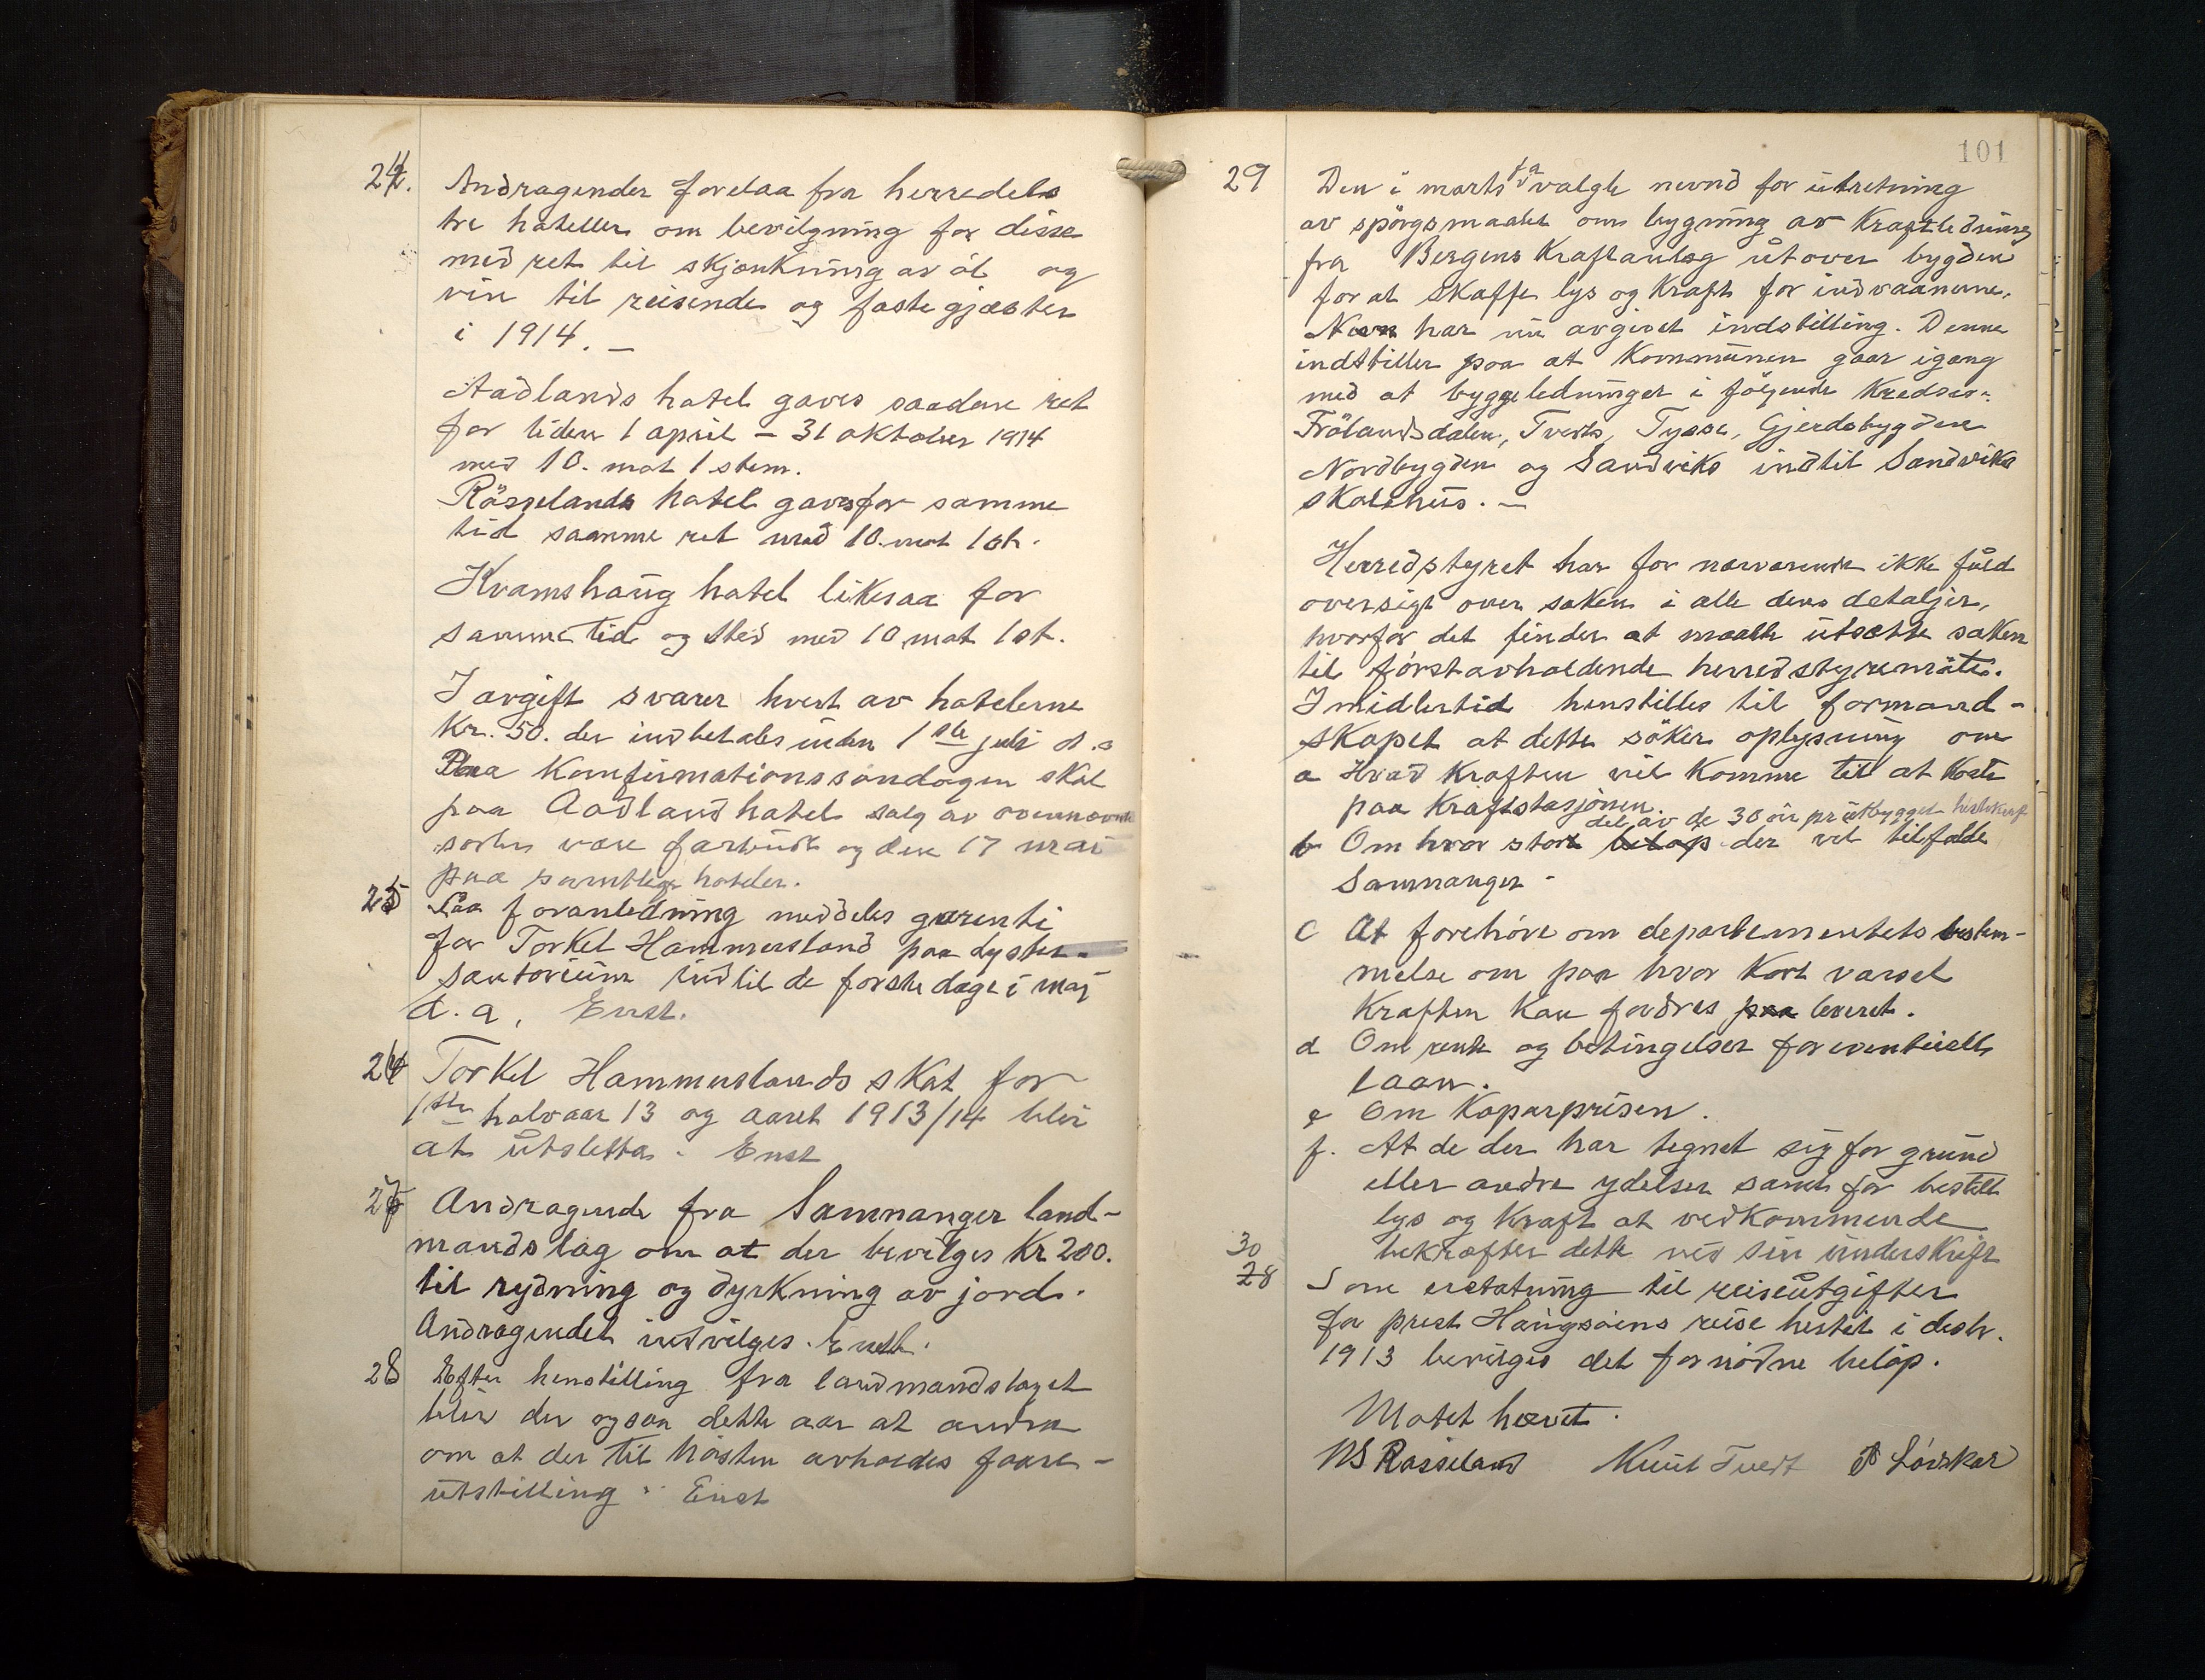 24. Andragender forelaa fra herredets
tre hoteller om bevilgning for disse
med ret til skjænkning av öl og
vin til reisende og faste gjæster
i 1914. —
Aadlands hotel gaves saadan ret
for tiden 1 april – 31 oktober 1914
med 10. mot 1 stem.
Rösselands hotel gaves for samme
tid samme ret med 10. mot 1 st.
Kvamshaug hotel likesaa for
samme tid og sted med 10 mot 1 st.
I avgift svarer hvert av hotelerne
Kr. 50. der indbetales inden 1ste juli d.a
Paa Konfirmationssöndagen skal
paa Aadland hotel salg av ovennævnte
sorter være forbudt og den 17 mai
paa samtlige hoteler.
25 Paa foranledning meddeles garenti
for Torkel Hammersland paa Lyster
santorium indtil de forste dage i mai
d.a. Enst.
26 Torkel Hammerslands skat for
1ste halvaar 13 og aaret 1913/14 blir
at utslettes. Enst
27 Andragende fra Samnanger land-
mandslag om at der bevilges Kr 200.
til rydning og dyrkning av jord.
Andragendet indvilges. Enst.
28 Efter henstilling fra landmandslaget
blir der ogsaa dette aar at andra
om at der til hösten avholdes faare-
utstilling. Enst
101
29 Den i marts f a valgte nevnd for utretning
av spörgsmaalet om bygning av Kraftledning
fra Bergens Kraftanlæg utover bygden
for at skaffe lys og Kraft for indvaanerne.
Nevn har nu avgivet indstilling. Denne
indstiller paa at Kommunen gaar igang
med at bygge ledninger i fölgende Kredser:
Frölandsdalen, Tveits, Tysse, Gjerdebygden
Nordbygden og Sandviks indtil Sandviks
skolehus. —
Herredstyret har for nærværende ikke fuld
oversigt over saken i alle dens detaljer,
hvorfor det finder at maatte utsætte saken
til förstavholdende herredstyremöte.
Imidlertid henstilles til formand-
skapet at dette söker oplysning om
a Hvad Kraften vil Komme til at Koste
paa Kraftstasjonen.
del av de 30 öre pr utbygget hestekraft
b Om hvor stor beløp der vil tilfalde
Samnanger
c At forehöre om departementets bestem-
melse om paa hvor Kort varsel
Kraften Kan fordres paa leveret.
d Om rente og betingelser for eventuelt
laan.
e Om Koparprisen.
f. At de der har tegnet sig for grund
eller andre ydelser samt for bestilt
lys og Kraft at vedkommende
bekræfter dette ved sin underskrift
30
28 Som erstatning til reiseutgifter
for prest Haugsöens reise hertil i desbr.
1913 bevilges det fornödne belöp.
Motet hævet.
NS Rösseland Knut Tveit P Lövskar